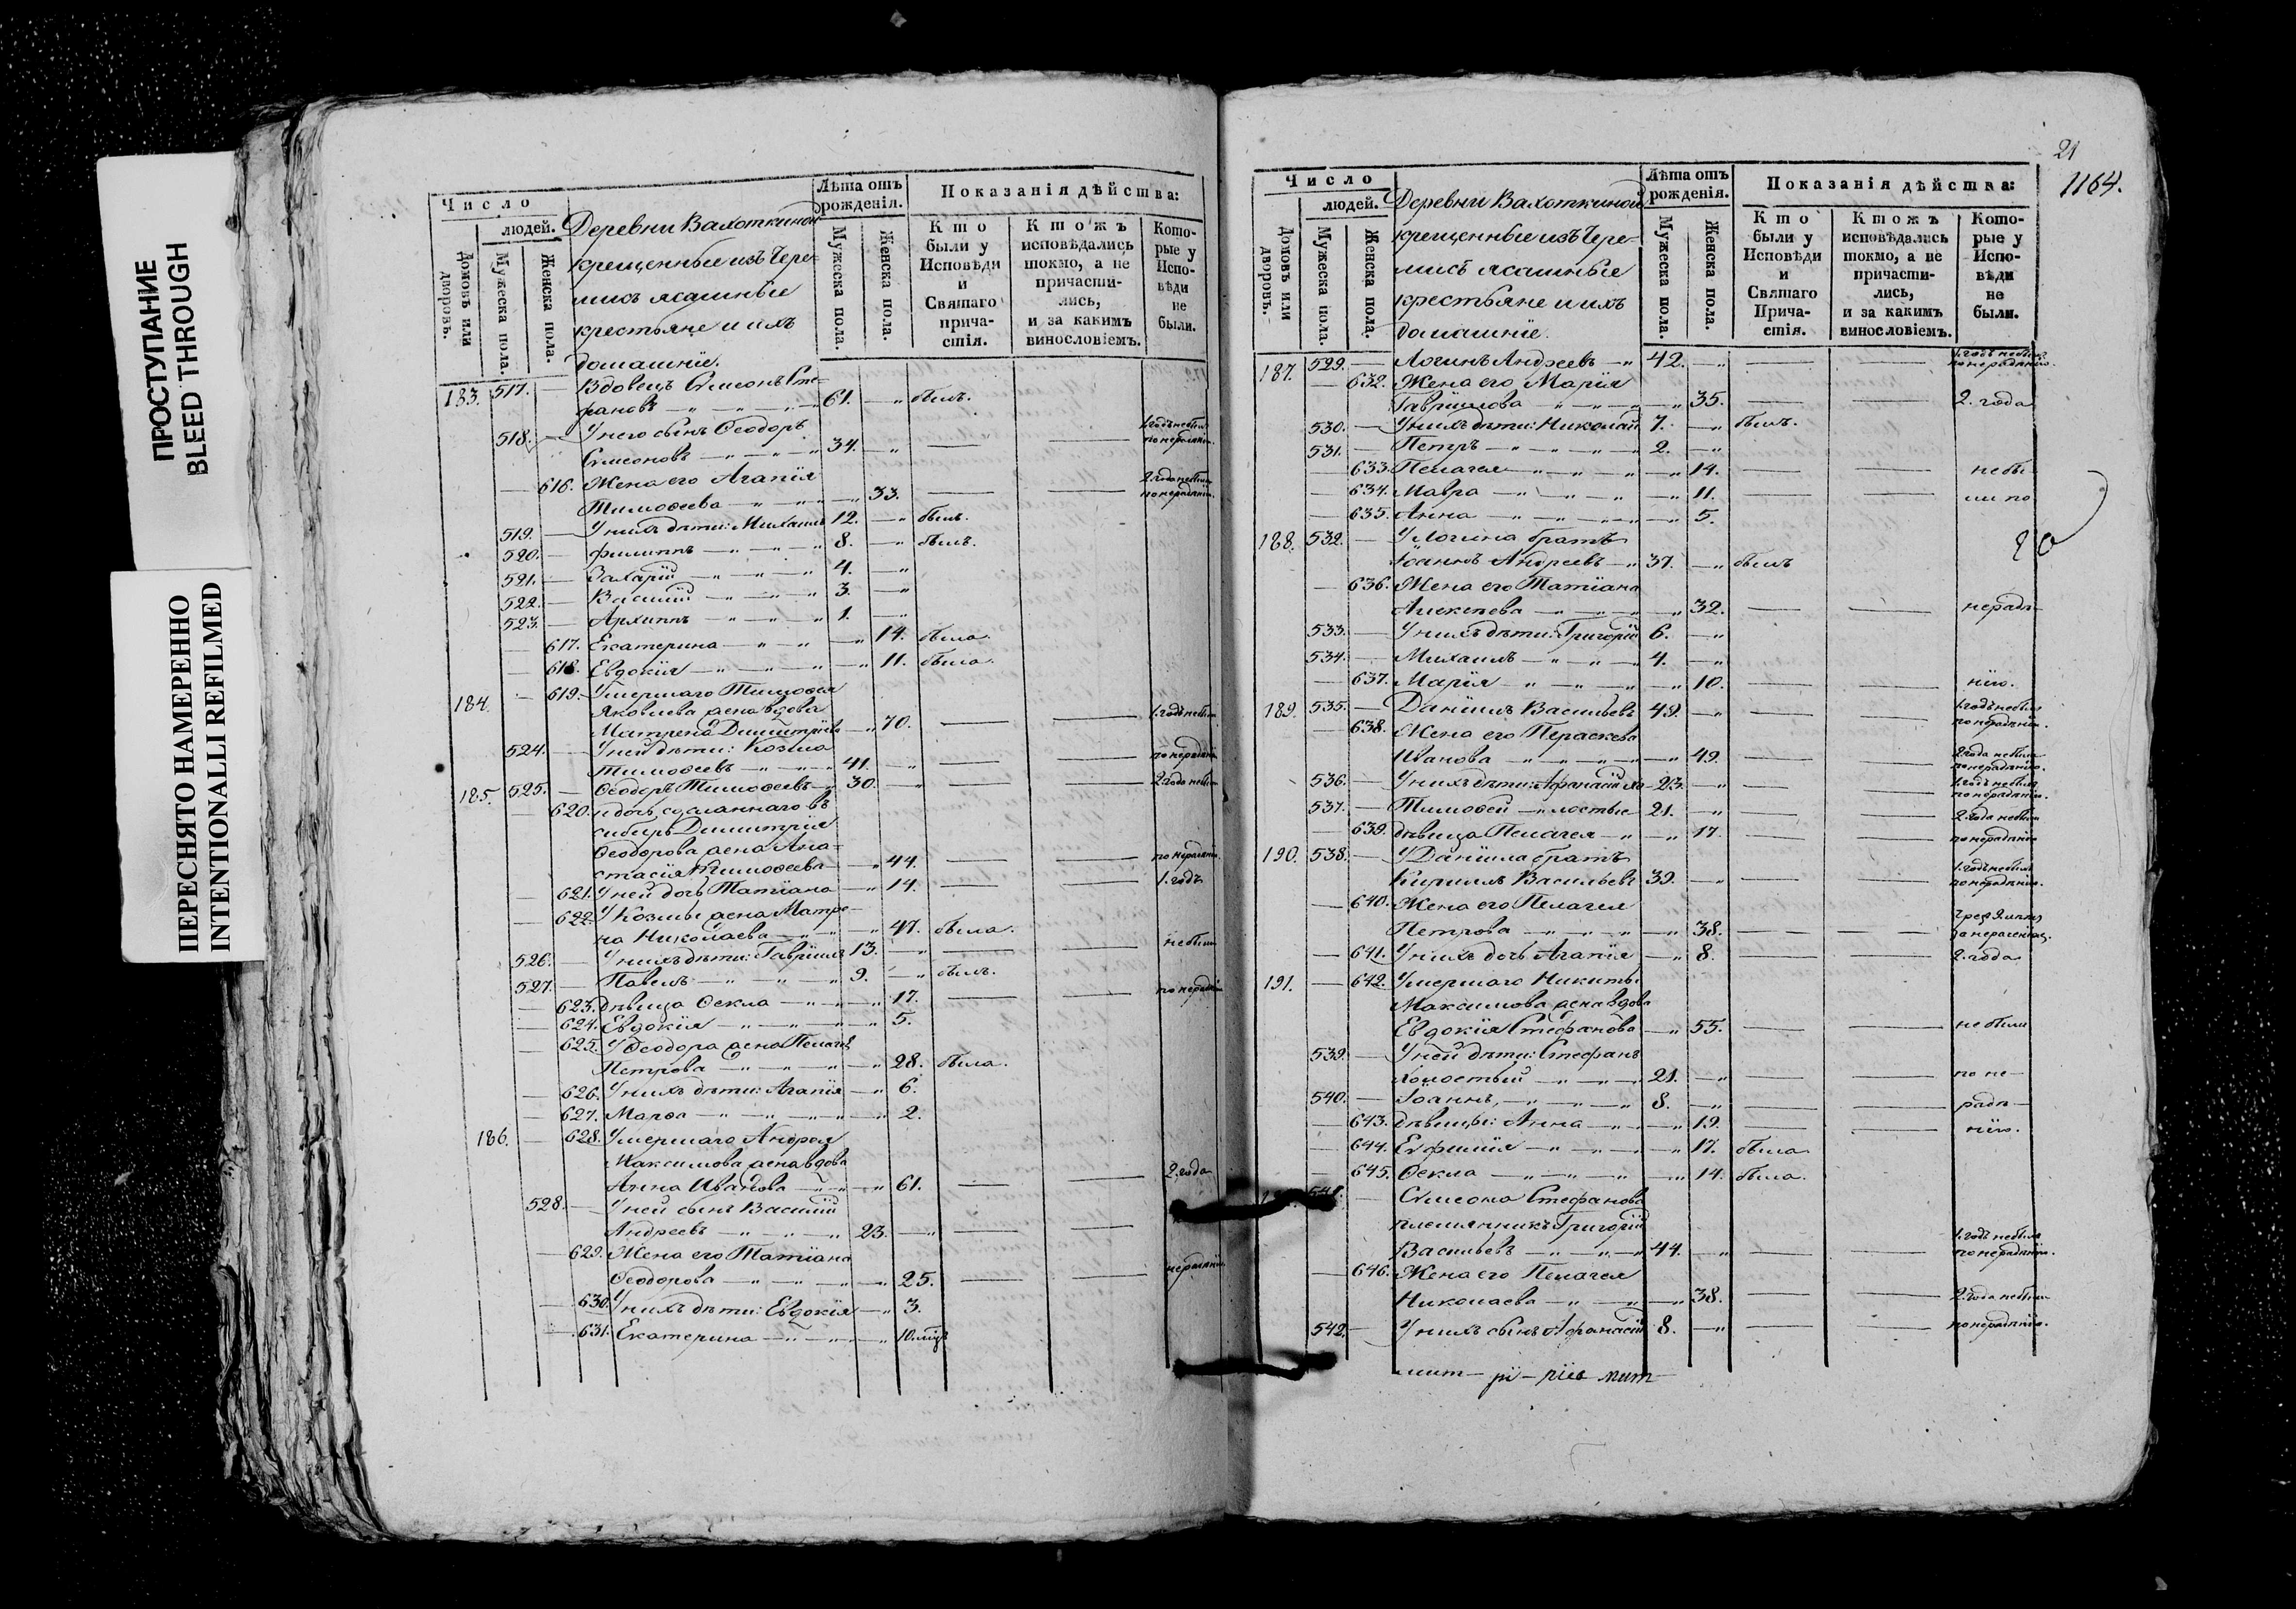 ПРОСТУПАНИЕ
BLEED THROUGH
ПЕРЕСНЯТО НАМЕРЕННО
INTENTIONALLI REFILMED
Число
людей.
Домовъ или дворовъ.
Мужеска пола.
Женска пола.
Деревни Вахоткиной
крещенные изъ Чере-
мисъ ясашные
крестьяне и ихъ
домашніе.
Лѣта отъ рожденія.
Мужеска пола.
Женска пола.
Показанія дѣйства:
Кто были у Исповѣди и Святаго причастія.
Ктожъ исповѣдались токмо, а не причастились, и за какимъ винословіемъ.
Которые у Исповѣди не были.
183. 517. — Вдовецъ Симеонъ Сте-
фановъ 61. — былъ.
518. — У него сынъ Ѳеодоръ 1. годъ не былъ
Симеоновъ 34. — по нерадѣнію.
— 616. Жена его Агапія 2. года не была
Тимоѳеева — 33. по нерадѣнію.
519. — У нихъ дѣти: Михаилъ 12. — былъ.
520. — Филиппъ 8. — былъ.
521. — Захарій 4. —
522. — Василій 3. —
523. — Архиппъ 1. —
— 617. Екатерина — 14. была.
— 618. Евдокія — 11. была.
184. — 619. Умершаго Тимоѳея
Яковлева жена вдова
Матрена Димитріева — 70. 1. годъ не была
524. — У ней дѣти: Козма
Тимоѳеевъ 41. — по нерадѣнію
185. 525. — Ѳеодоръ Тимоѳеевъ 30. — 2. года не были
— 620. сосланнаго въ
сибирь Димитрія
Ѳеодорова жена Ана-
стасія Тимоѳеева — 44. по нерадѣнію.
— 621. У ней дочь Татіана — 14. 1. годъ
— 622. У Козмы жена Матре-
на Николаева — 47. была.
526. — У нихъ дѣти: Гавріилъ 13. — не были
527. — Павелъ 9. — былъ.
— 623. дѣвица Ѳекла — 17. по нерадѣнію
— 624. Евдокія — 5.
— 625. У Ѳеодора жена Пелагея
Петрова — 28. была.
— 626. У нихъ дѣти: Агапія — 6.
— 627. Марѳа — 2.
186. — 628. Умершаго Андрея
Максимова жена вдова
Анна Иванова — 61. 2. года
528. — У ней сынъ Василій
Андреевъ 23. —
— 629. Жена его Татіана
Ѳеодорова — 25. нерадѣнію.
— 630. У нихъ дѣти: Евдокія — 3.
— 631. Екатерина — 10. мцъ
21
1164.
Число
людей.
Домовъ или дворовъ.
Мужеска пола.
Женска пола.
Деревни Вахоткиной
крещенные изъ Чере-
мисъ ясашные
крестьяне и ихъ
домашніе.
Лѣта отъ рожденія.
Мужеска пола.
Женска пола.
Показанія дѣйства:
Кто были у Исповѣди и Святаго Причастія.
Ктожъ исповѣдались токмо, а не причастились, и за какимъ винословіемъ.
Которые у Исповѣди не были.
187. 529. — Логинъ Андреевъ 42. — 1. годъ не былъ по нерадѣнію.
— 632. Жена его Марія
Гавріилова — 35. 2. года
530. — У нихъ дѣти: Николай 7. — былъ.
531. — Петръ 2. —
633. Пелагея — 14. не бы-
— 634. Мавра — 11. ли по
— 635. Анна — 5.
188. 532. — У Логина братъ
Іоаннъ Андреевъ 37. — былъ
— 636. Жена его Татіана
Алексеева — 32. нерадѣ-
533. — У нихъ дѣти: Григорій 6. —
534. — Михаилъ 4. —
— 637. Марія — 10. нію.
189. 535. — Даніилъ Васильевъ 49. — 1. годъ не былъ по нерадѣнію.
— 638. Жена его Параскева
Иванова — 49. 2. года не была по нерадѣнію.
536. — У нихъ дѣти: Афанасій хо- 23. — 1. годъ не былъ по нерадѣнію.
537. — Тимоѳей лостые 21. — 2. года не были
— 639. дѣвица Пелагея — 17. по нерадѣнію
190. 538. — У Даніила братъ
Кириллъ Васильевъ 39. — 1. годъ не былъ по нерадѣнію.
— 640. Жена его Пелагея
Петрова — 38.
— 641. У нихъ дочь Агапія — 8. 2. года
191. — 642. Умершаго Никиты
Максимова жена вдова
Евдокія Стефанова — 55. не были
539. — У ней дѣти: Стефанъ
холостый 21. — по не-
540. — Іоаннъ, 8. — радѣ-
— 643. дѣвицы: Анна — 19. нію.
— 644. Евфимія — 17. была
— 645. Ѳекла — 14. была.
541. — Симеона Стефанова
племянникъ Григорій
Васильевъ 44. — 1. годъ не былъ по нерадѣнію.
— 646. Жена его Пелагея
Николаева — 38. 2. года не были
542. — У нихъ сынъ Афанасій 8. — по нерадѣнію.